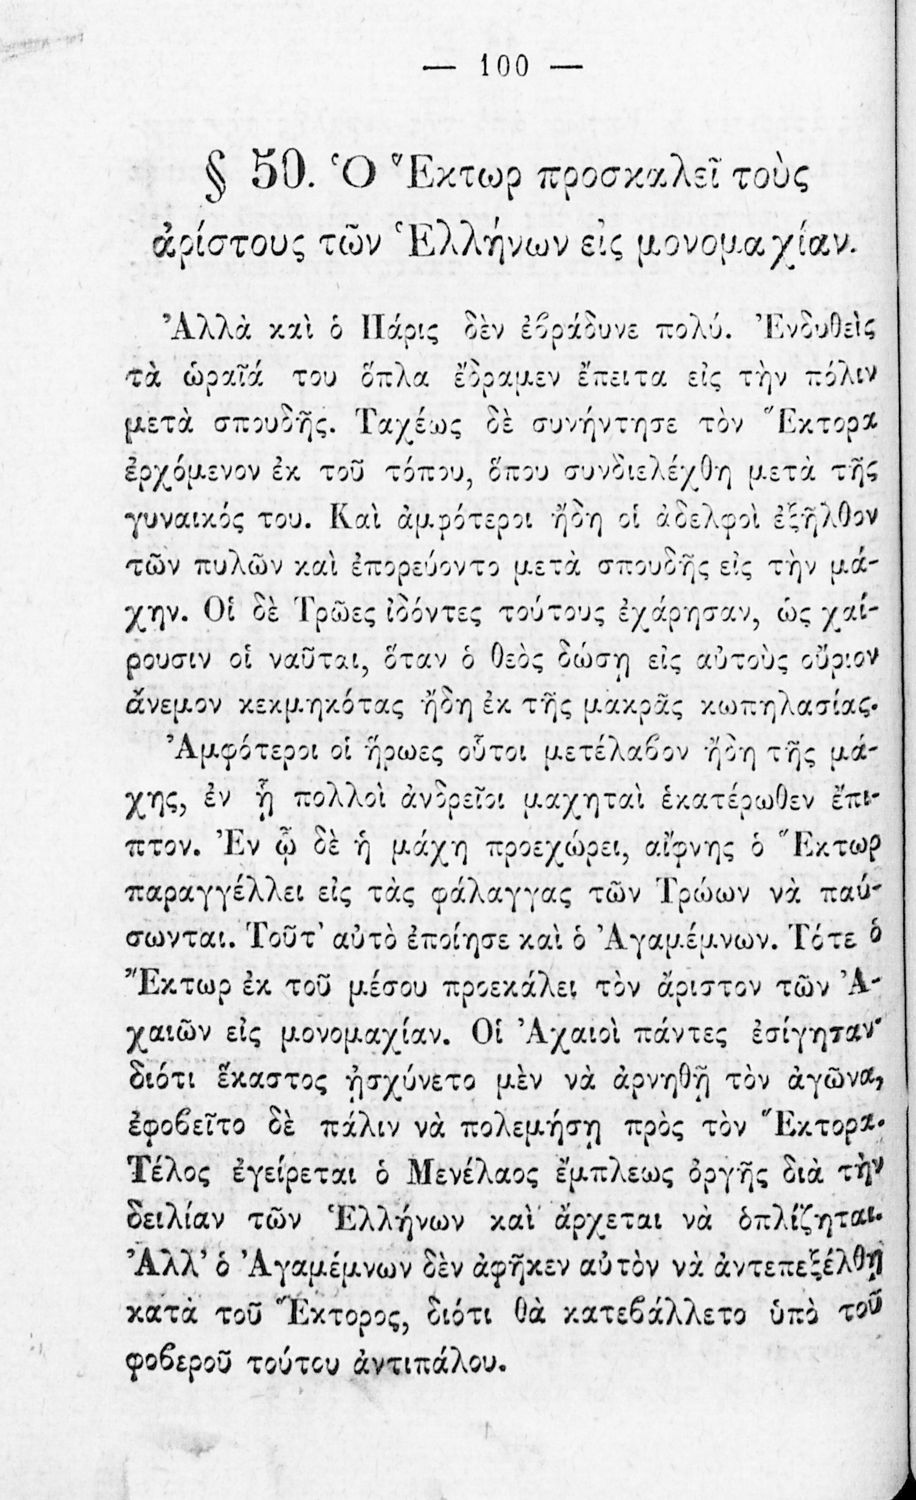 — 100 —
§ 50. Ὁ Ἕκτωρ προσκαλεῖ τοὺς
ἀρίστους τῶν Ἑλλήνων εἰς μονομαχίαν.
Ἀλλὰ καὶ ὁ Πάρις δὲν ἐβράδυνε πολύ. Ἐνδυθεὶς
τὰ ὡραῖά του ὅπλα ἔδραμεν ἔπειτα εἰς τὴν πόλιν
μετὰ σπουδῆς. Ταχέως δὲ συνήντησε τὸν Ἕκτορα
ἐρχόμενον ἐκ τοῦ τόπου, ὅπου συνδιελέχθη μετὰ τῆς
γυναικός του. Καὶ ἀμφότεροι ἤδη οἱ ἀδελφοὶ ἐξῆλθον
τῶν πυλῶν καὶ ἐπορεύοντο μετὰ σπουδῆς εἰς τὴν μά-
χην. Οἱ δὲ Τρῶες ἰδόντες τούτους ἐχάρησαν, ὡς χαί-
ρουσιν οἱ ναῦται, ὅταν ὁ θεὸς δώσῃ εἰς αὐτοὺς οὔριον
ἄνεμον κεκμηκότας ἤδη ἐκ τῆς μακρᾶς κωπηλασίας.
Ἀμφότεροι οἱ ἥρωες οὗτοι μετέλαβον ἤδη τῆς μά-
χης, ἐν ᾗ πολλοὶ ἀνδρεῖοι μαχηταὶ ἑκατέρωθεν ἔπι-
πτον. Ἐν ᾧ δὲ ἡ μάχη προεχώρει, αἴφνης ὁ Ἕκτωρ
παραγγέλλει εἰς τὰς φάλαγγας τῶν Τρώων νὰ παύ-
σωνται. Τοῦτ' αὐτὸ ἐποίησε καὶ ὁ Ἀγαμέμνων. Τότε ὁ
Ἕκτωρ ἐκ τοῦ μέσου προεκάλει τὸν ἄριστον τῶν Ἀ-
χαιῶν εἰς μονομαχίαν. Οἱ Ἀχαιοὶ πάντες ἐσίγησαν·
διότι ἕκαστος ᾐσχύνετο μὲν νὰ ἀρνηθῇ τὸν ἀγῶνα,
ἐφοβεῖτο δὲ πάλιν νὰ πολεμήσῃ πρὸς τὸν Ἕκτορα.
Τέλος ἐγείρεται ὁ Μενέλαος ἔμπλεως ὀργῆς διὰ τὴν
δειλίαν τῶν Ἑλλήνων καὶ ἄρχεται νὰ ὁπλίζηται.
Ἀλλ' ὁ Ἀγαμέμνων δὲν ἀφῆκεν αὐτὸν νὰ ἀντεπεξέλθῃ
κατὰ τοῦ Ἕκτορος, διότι θὰ κατεβάλλετο ὑπὸ τοῦ
φοβεροῦ τούτου ἀντιπάλου.